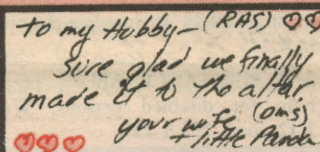 to my Hubby- (RAS)
Sure glad we finally
made it to tho altar
your wife (oms)
+ little Panda